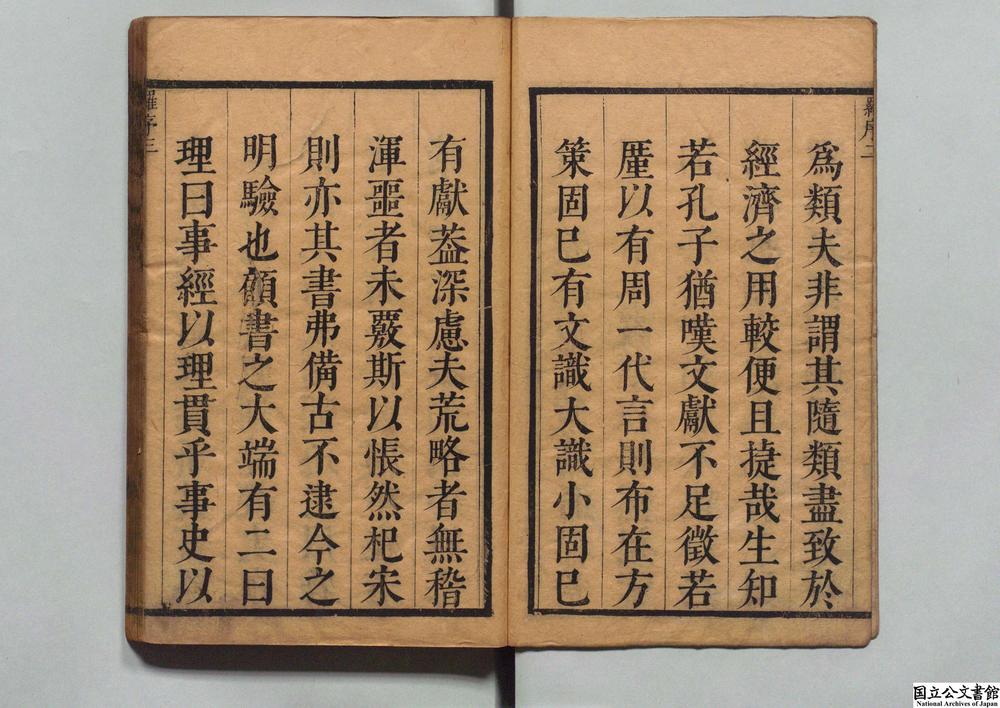 羅序二
爲類夫非謂其隨類盡致於
經濟之用較便且㨗哉生知
若孔子猶嘆文獻不足徵若
厪以有周一代言則布在方
策固巳有文識大識小固巳
有獻葢深慮夫荒略者無稽
渾噩者未覈斯以悵然杞宋
則亦其書弗備古不逮今之
明驗也顧書之大端有二曰
理曰事經以理貫乎事史以
羅序三
国立公文書館
National Archives of Japan